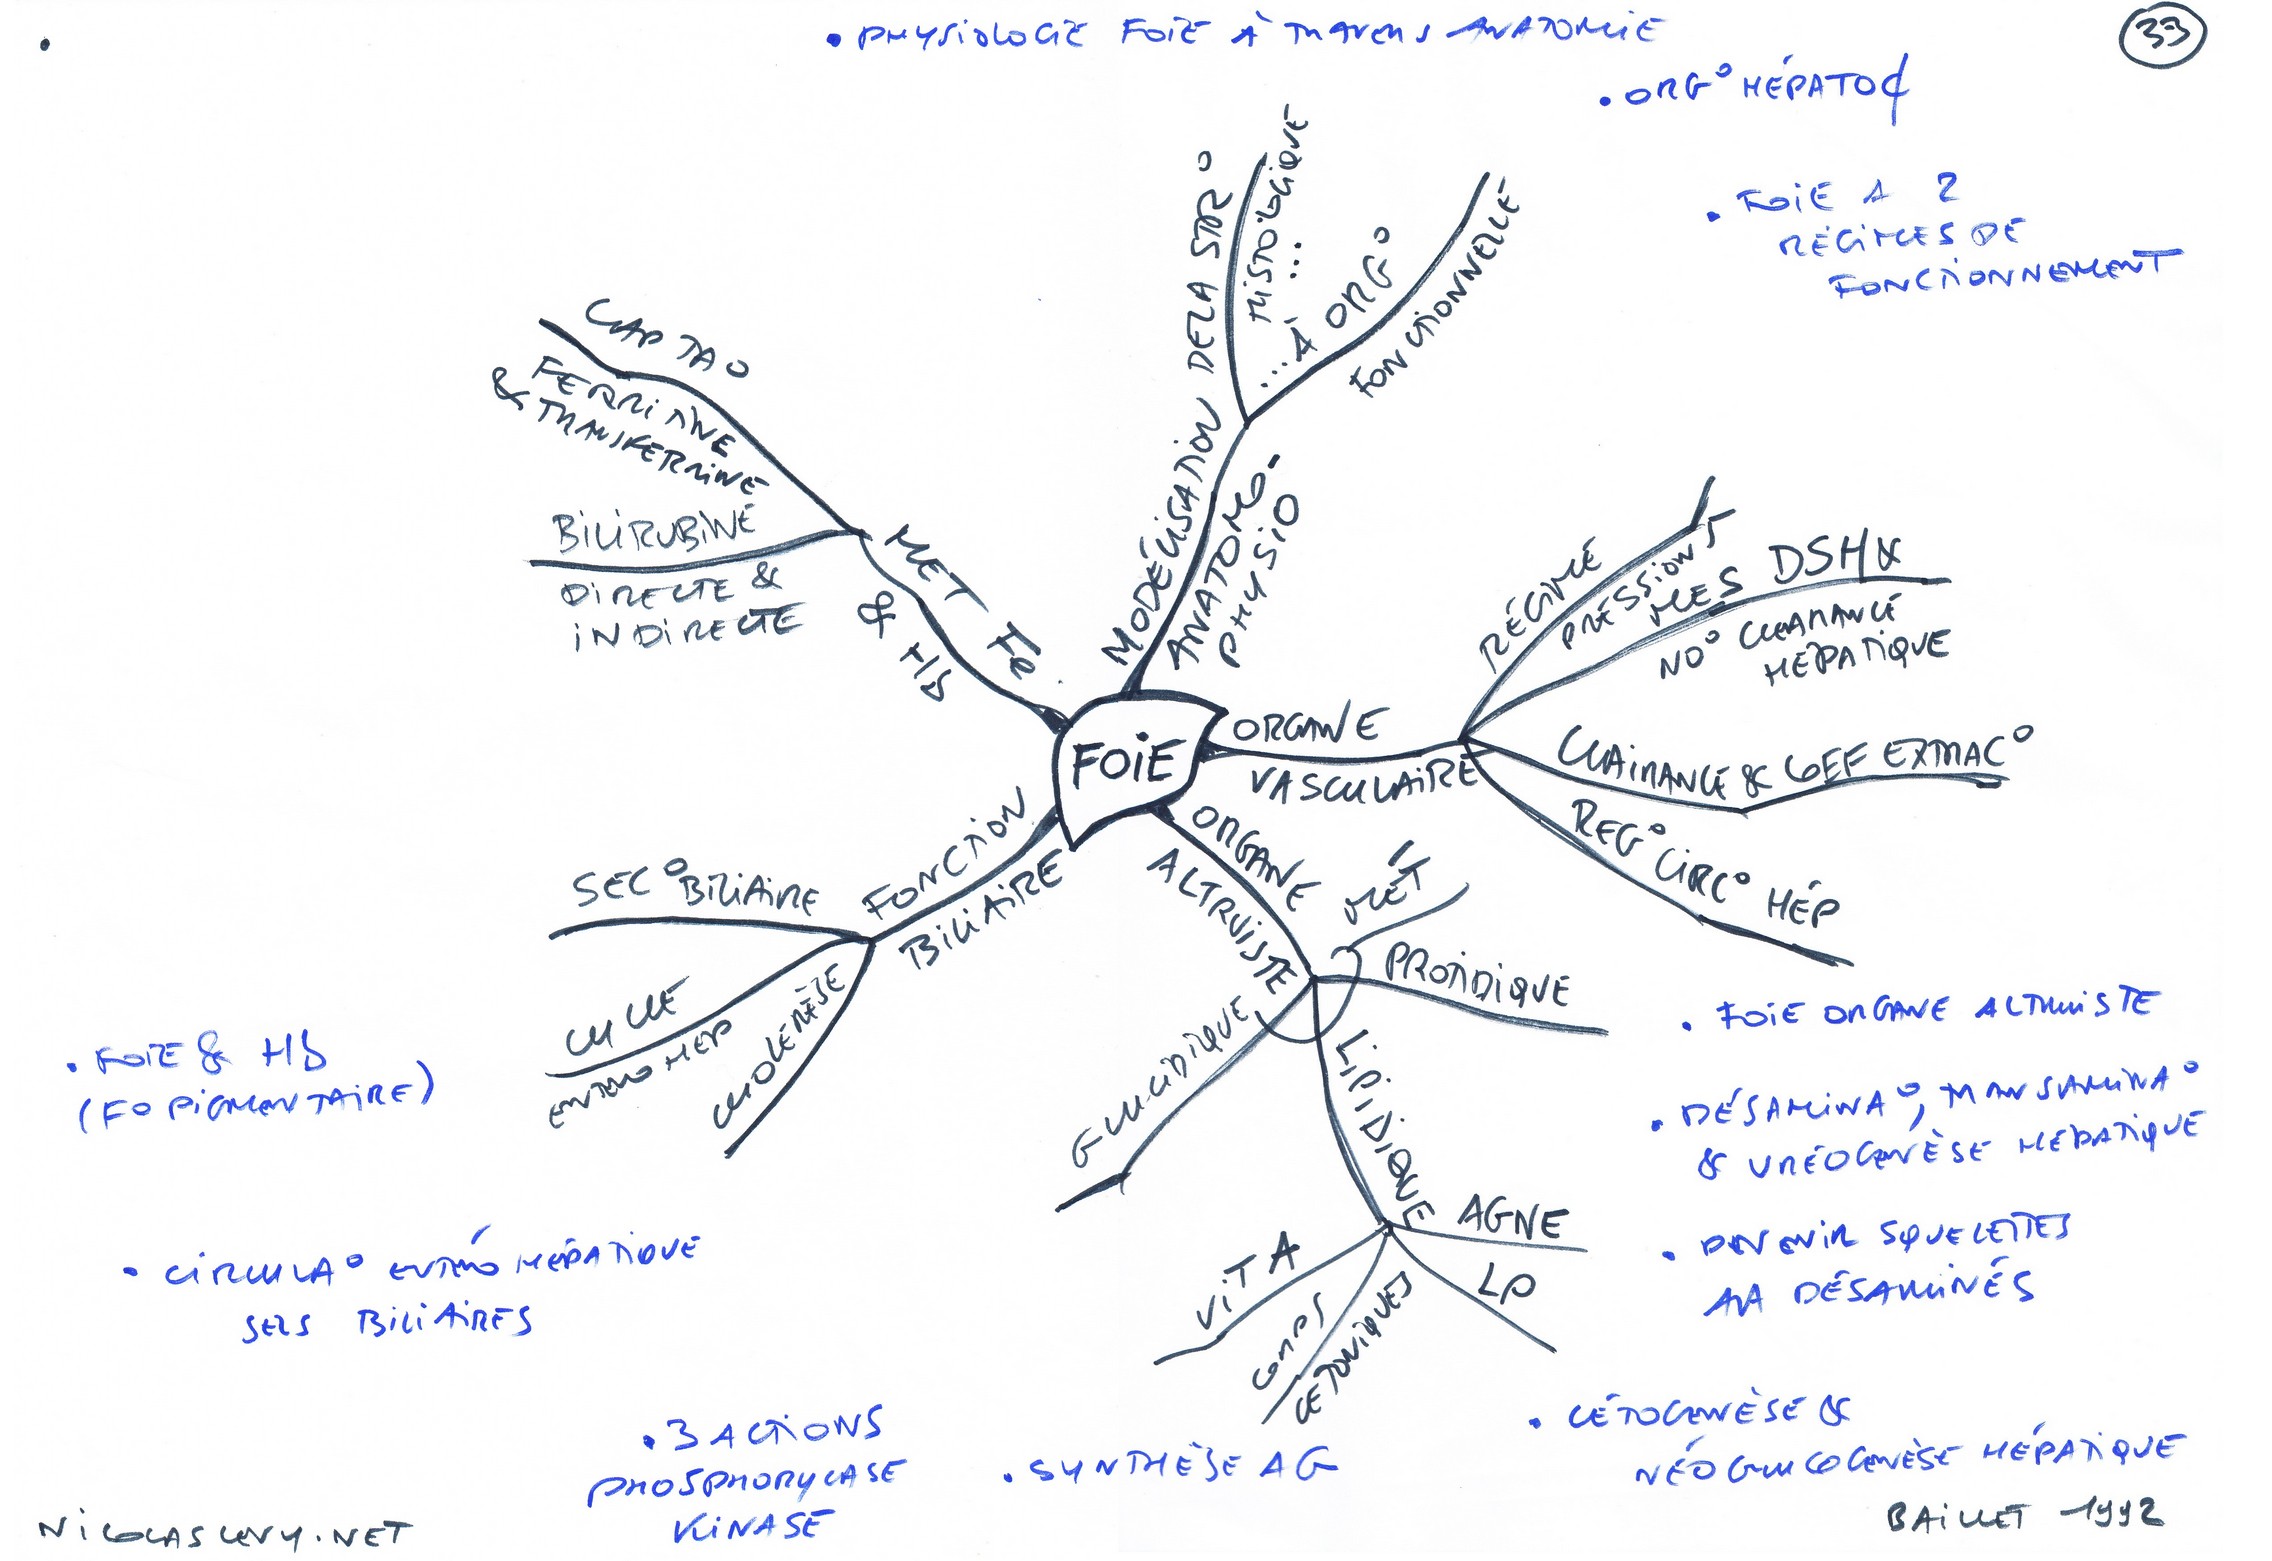 • PHYSIOLOGIE FOIE À TRAVERS ANATOMIE
33
• ORG° HÉPATO¢
• FOIE A 2
RÉGIMES DE
FONCTIONNEMENT
MODÉLISATION DE LA STR°
HISTOLOGIQUE ...
... À ORG°
FONCTIONNELLE
ANATOMO-
PHYSIO
CAPTA°
FERRITINE
& TRANSFERRINE
BILIRUBINE
DIRECTE &
INDIRECTE
MET Fe
& Hb
RÉGIME
PRESSIONS
MES DSHX
NO° CLEARANCE
HÉPATIQUE
ORGANE
VASCULAIRE
CLAIRANCE & COEF EXTRAC°
REG° CIRC° HÉP
FOIE
FONCTION
BILIAIRE
SEC° BILIAIRE
CYCLE
ENTERO HEP
CHOLERÈSE
ORGANE
ALTRUISTE
MÉT
PROTIDIQUE
GLUCIDIQUE
LIPIDIQUE
AGNE
LP
CORPS
CÉTONIQUES
VIT A
• FOIE ORGANE ALTRUISTE
• DÉSAMINA°, TRANSAMINA°
& URÉOGENÈSE HÉPATIQUE
• DEVENIR SQUELETTES
AA DÉSAMINÉS
• CÉTOGENÈSE &
NÉOGLUCOGENÈSE HÉPATIQUE
BAILLET 1992
• FOIE & Hb
(FO PIGMENTAIRE)
• CIRCULA° ENTÉRO HÉPATIQUE
SELS BILIAIRES
• 3 ACTIONS
PHOSPHORYLASE
KINASE
• SYNTHÈSE AG
NICOLASLEVY.NET